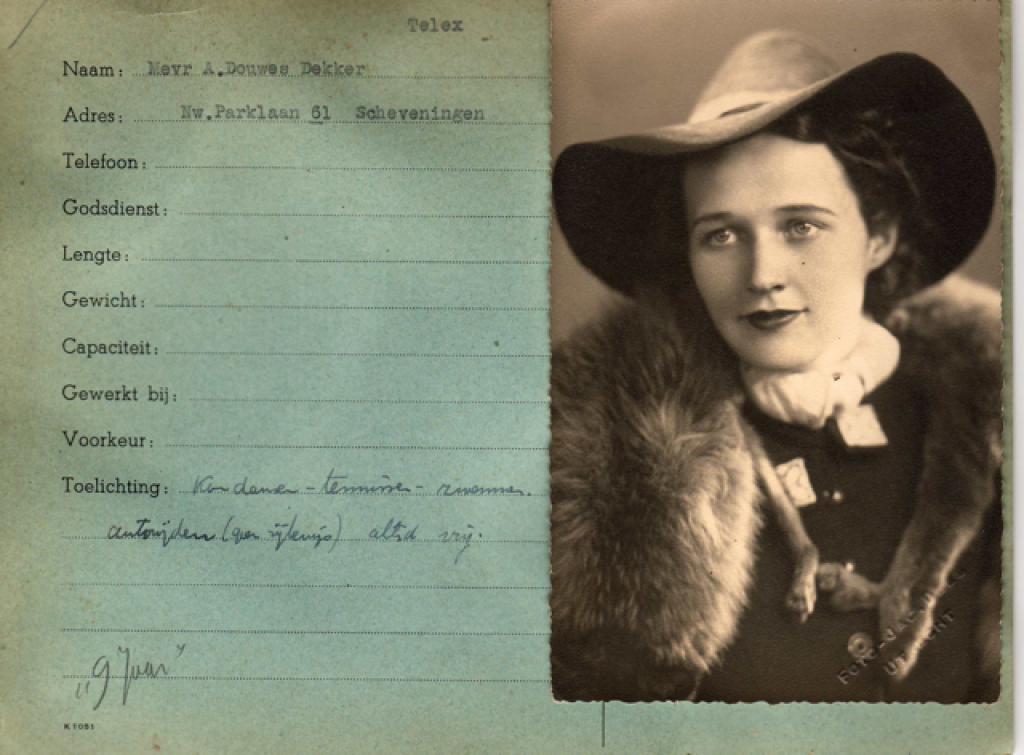 Telex
Naam: Mevr A.Douwes Dekker
Adres: Nw.Parklaan 61 Scheveningen
Telefoon:
Godsdienst:
Lengte:
Gewicht:
Capaciteit:
Gewerkt bij:
Voorkeur:
Toelichting: Kan dansen - tennissen - zwemmen.
autorijden (geen rijbewijs) altijd vrij.
K1051
FOTO
UTRECHT